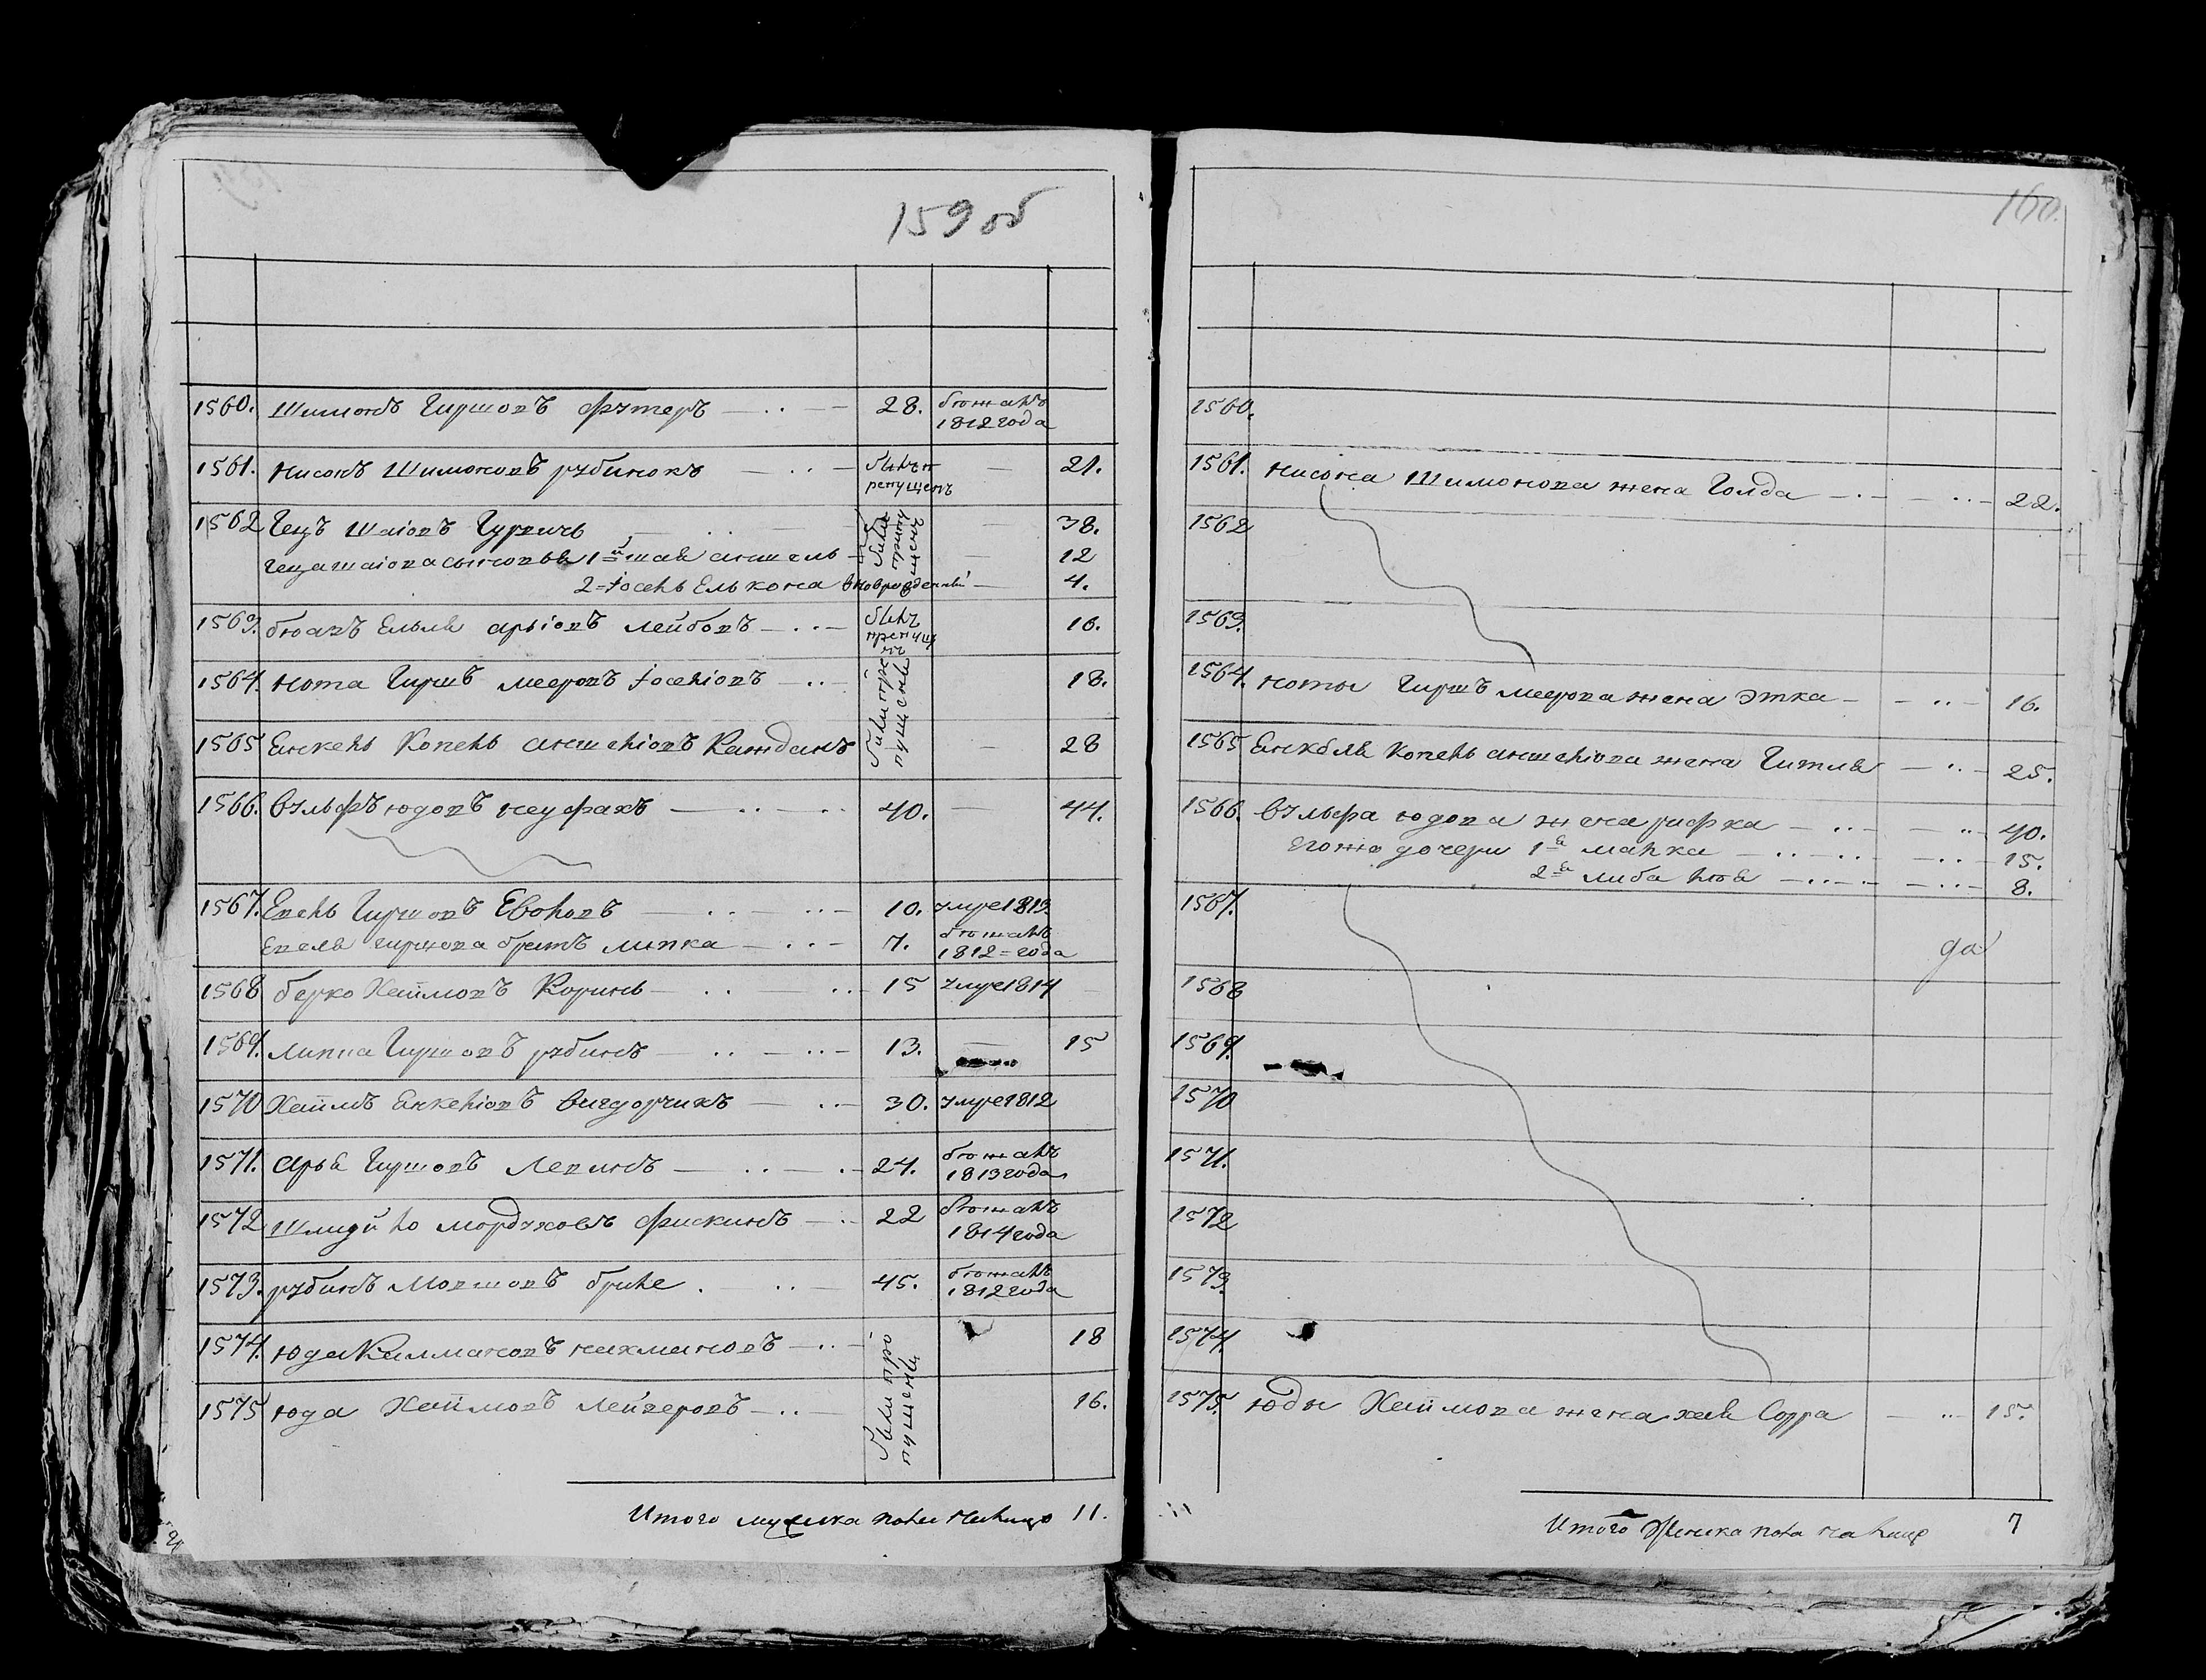 159 об
1560. Шимонъ Гиршовъ Футеръ 28. бежалъ 1812 года
1561. Нисонъ Шимоновъ рубинокъ былъ пропущенъ 21.
1562 Гецъ Шаіовъ Гурвичъ былъ пропущенъ 38.
Геца Шаіова сыновья 1й шая аншель 12
2=й Іосель Елькона вновь рожденный 4.
1563. Елья аріовъ лейбовъ былъ пропущ 16.
1564. Нота Гиршъ мееровъ Іоселіовъ были про 18.
1565 Енкель Копель аншеліовъ Каждань пущены 28
1566. вульфъ юдовъ неуфахъ 40. 44.
1567. Евель Гиршовъ 10. умре 1813.
Евеля Гиршова братъ липка 7. бежалъ 1812=года
1568 берко Хаймовъ Коринь 15 умре 1814
1569. Липка Гиршовъ рубинъ 13. 15
1570 Хаймъ Енкеліовъ вигдорчикъ 30. умре 1812
1571. арья Гиршовъ Левинъ 24. бежалъ 1813 года
1572 Шмуйло мордуховъ Фискинъ 22 бежалъ 1814 года
1573. рубинъ Мовшовъ 45. бежалъ 1812 года
1574. Юда Калмановъ нахмановъ были про 18
1575 юда Хаймовъ Лейзеровъ пущены 16.
Итого мужска пола на лицо 11.
160.
1560.
1561. Нисона Шимонова жена Голда 22.
1562
1563.
1564. Ноты Гиршъ меерова жена Этка 16.
1565 Енкеля Копель аншеліова жена Гитля 25.
1566. вульфа юдова жена рифка 40.
Его же дочери 1я малка 15.
2я либа 8.
1567.
да
1568
1569.
1570
1571.
1572
1573.
1574.
1575. Юды Хаймова жена хая Сорра 15.
Итого Женска пола на лицо 7